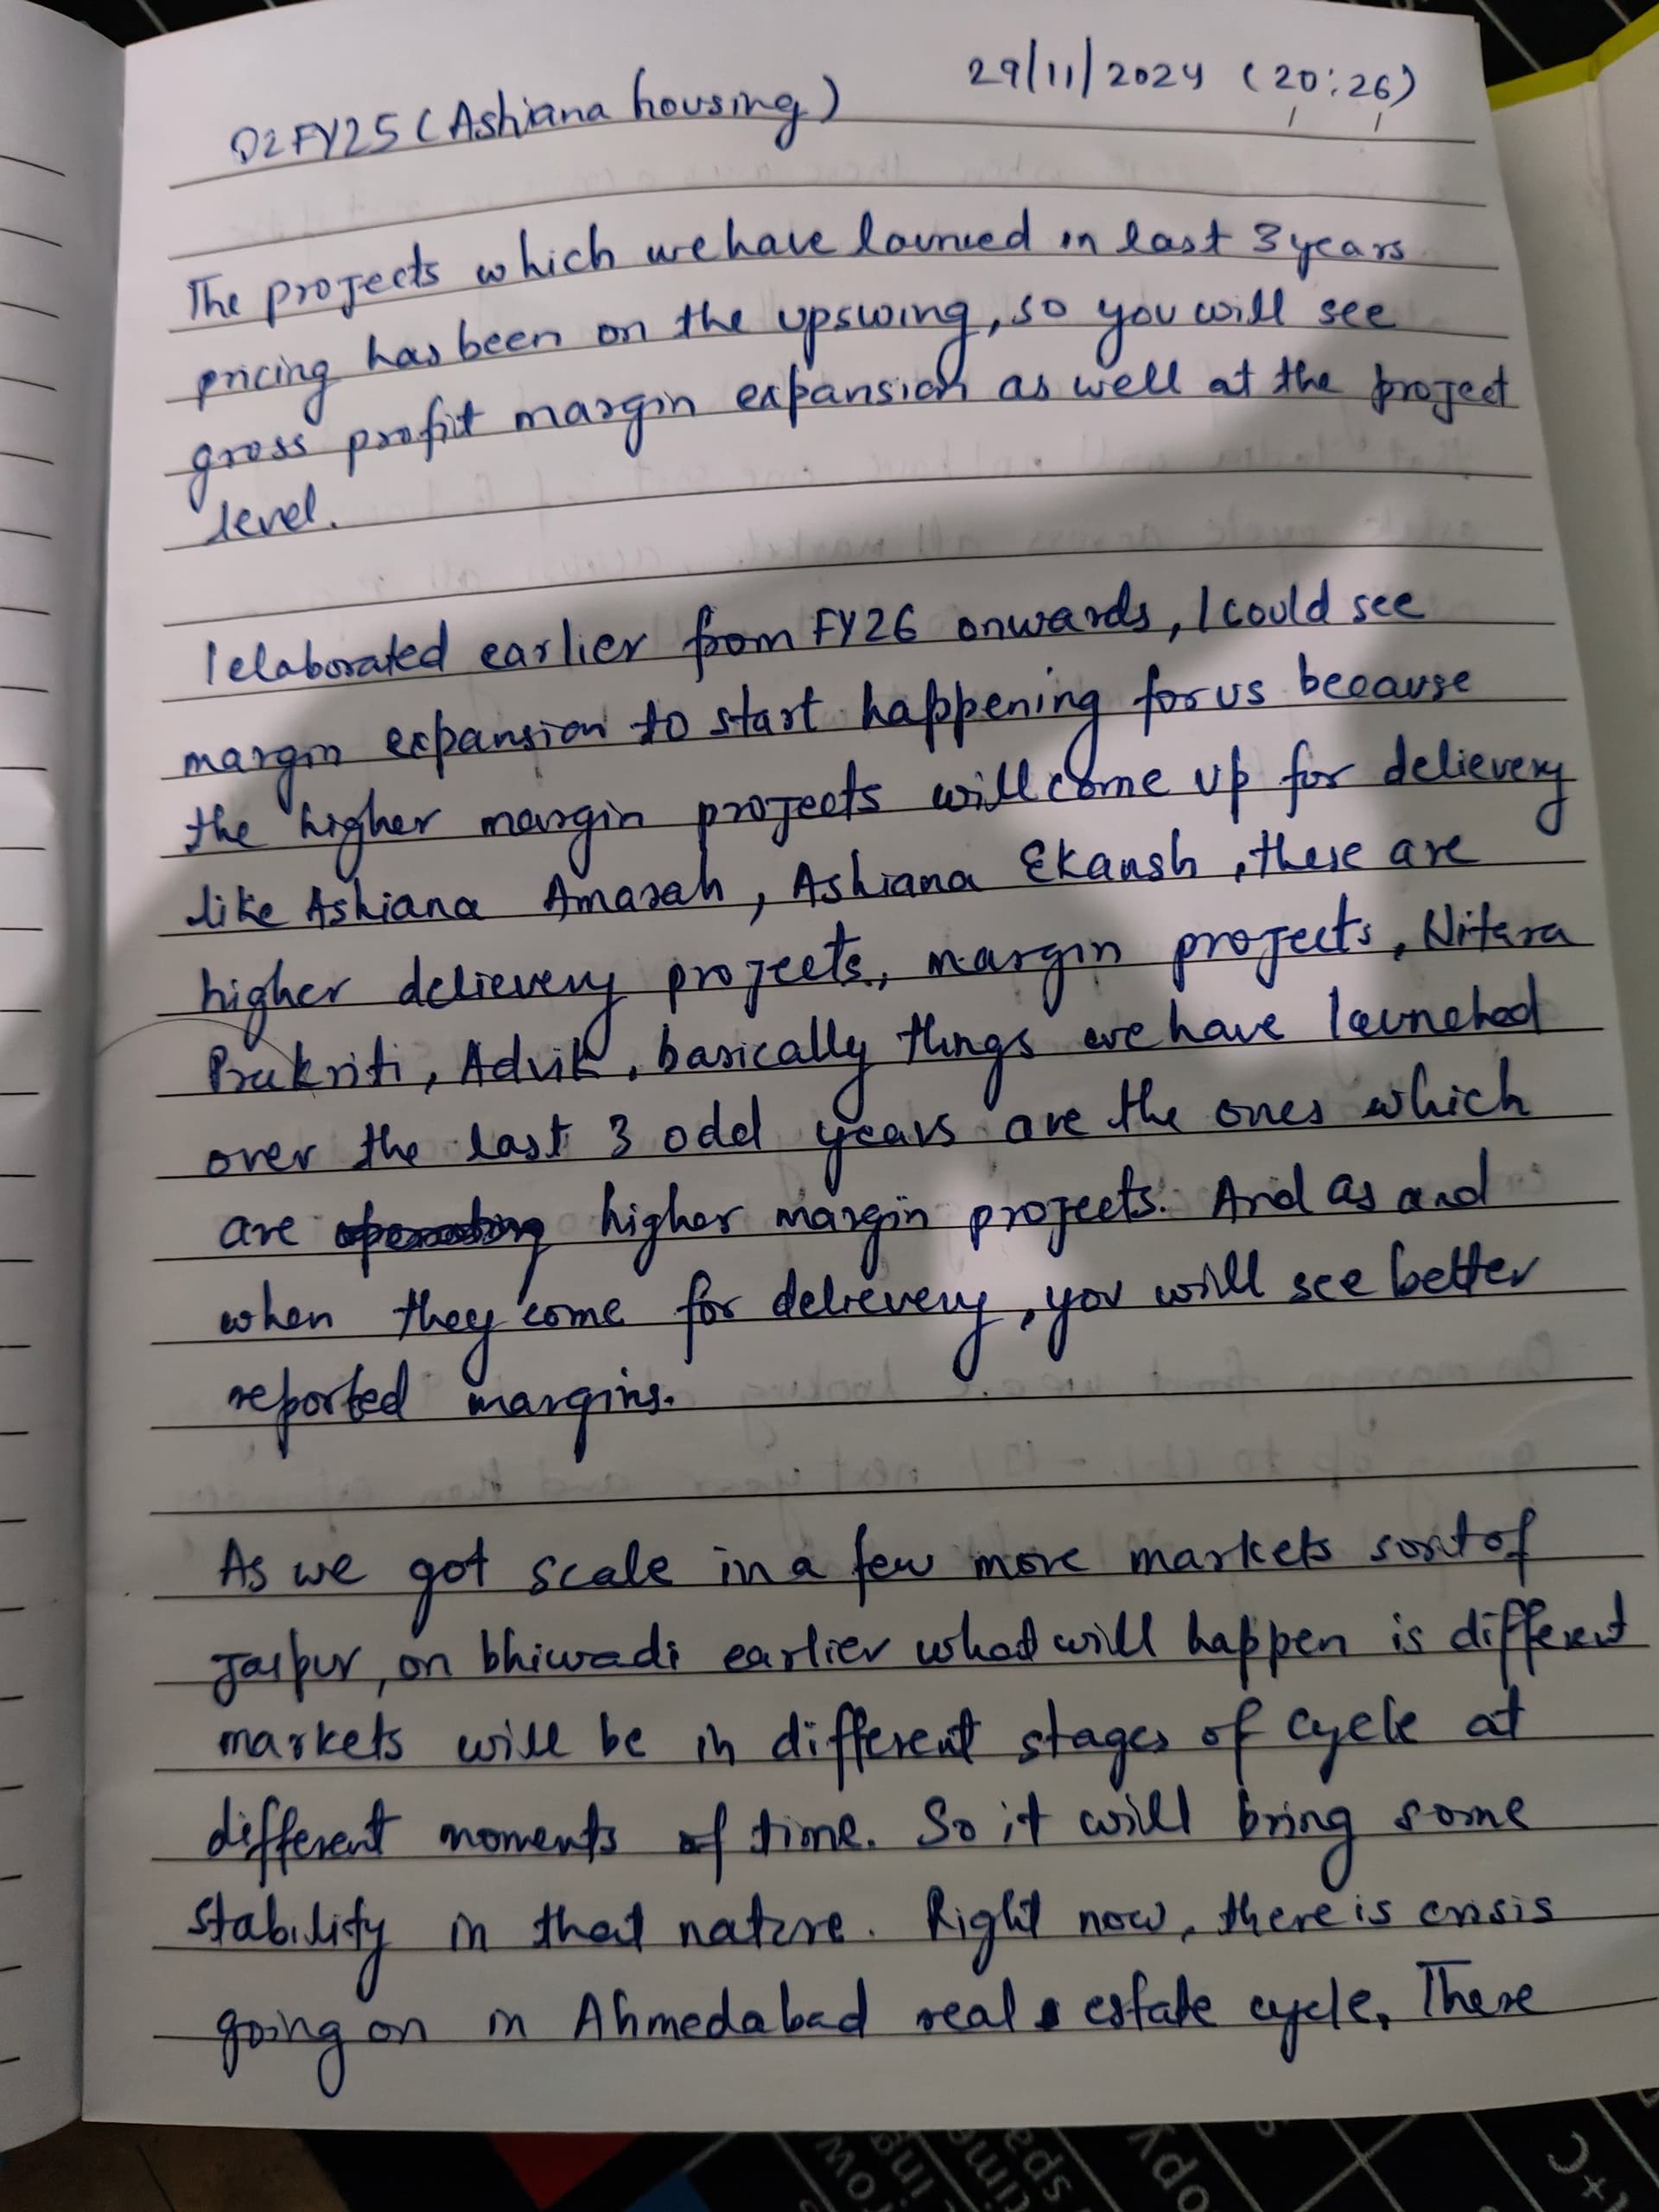 Q2FY25 (Ashiana housing) 29/11/2024 (20:26)
The projects which we have lounced in last 3 years
pricing has been on the upswing, so you will see
gross profit margin expansion as well at the project
level.
I elaborated earlier from FY26 onwards, I could see
margin expansion to start happening for us because
the higher margin projects will come up for delievery
like Ashiana Amarah, Ashiana Ekansh, these are
higher delievery projects, margin projects, Nitara
Prakriti, Advik, basically things we have launched
over the last 3 odd years are the ones which
are higher margin projects. And as and
when they come for delievery, you will see better
reported margins.
As we got scale in a few more markets sort of
Jaipur, on bhiwadi earlier what will happen is different
markets will be in different stages of cycle at
different moments of time. So it will bring some
stability in that nature. Right now, there is crisis
going on in Ahmedabad real estate cycle, There